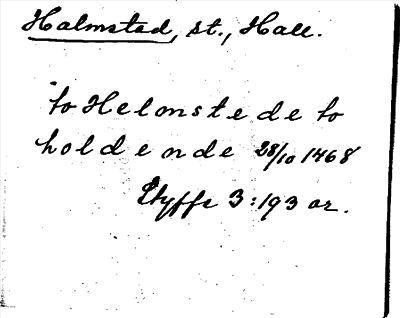 Halmstad, st., Hall.
to Helmstede to
holdende 28/10 1468
Styffe 3:193 or.